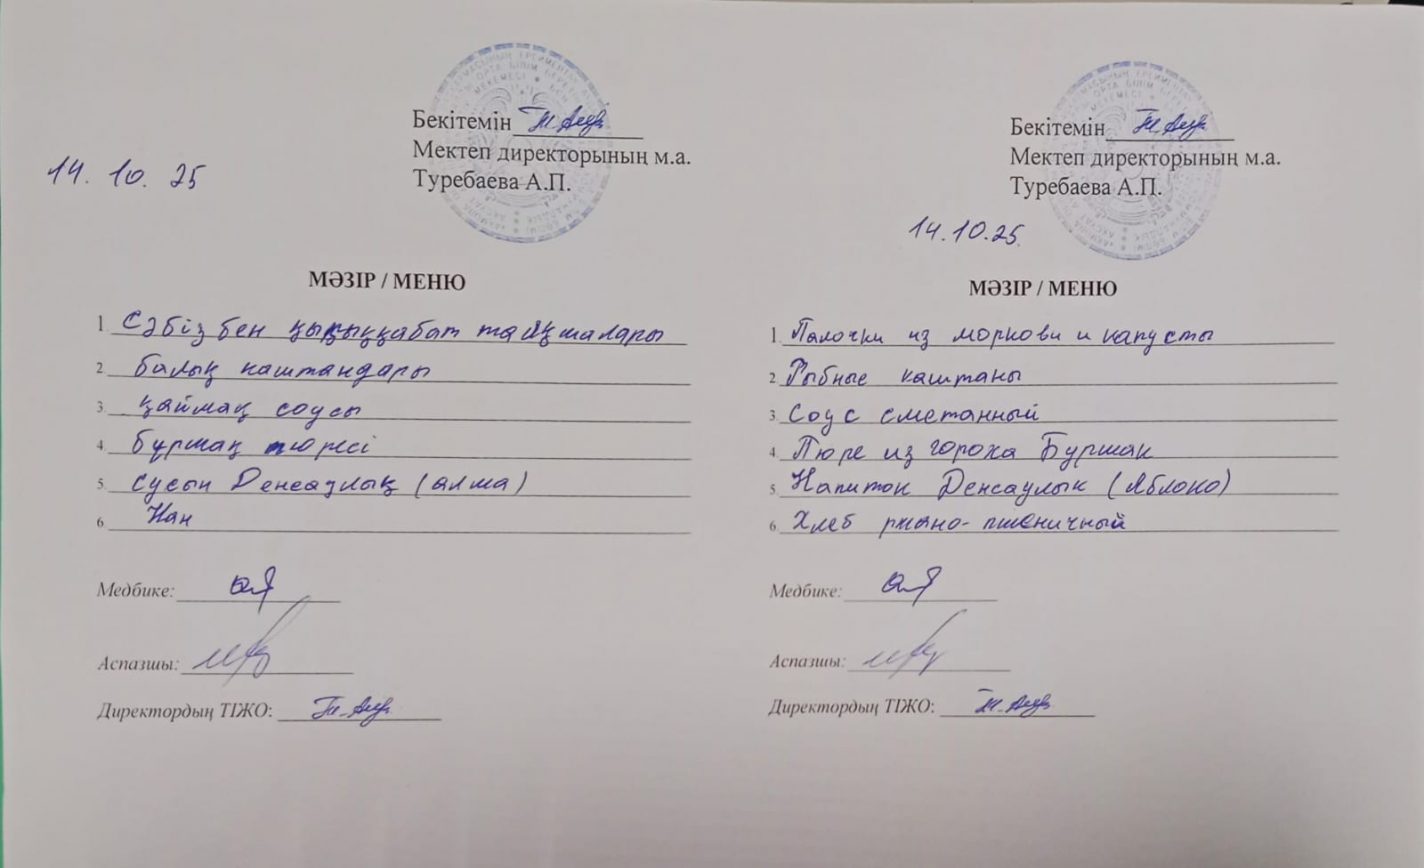 Бекітемін
Мектеп директорының м.а.
Туребаева А.П.
14. 10. 25
МӘЗІР / МЕНЮ
1 Сәбіз бен қырыққабат таяқшалары
2. балық каштандары
3. қаймақ соусы
4. бұршақ пюресі
5. сусын Денсаулық (алма)
6 Нан
Медбике:
Аспазшы:
Директордың ТІЖО:
Бекітемін
Мектеп директорының м.а.
Туребаева А.П.
14.10.25
МӘЗІР / МЕНЮ
1. Палочки из моркови и капусты
2. Рыбные каштаны
3. Соус сметанный
4. Пюре из гороха Буршак
5. Напиток Денсаулык (Яблоко)
6. Хлеб ржано-пшеничный
Медбике:
Аспазшы:
Директордың ТІЖО: